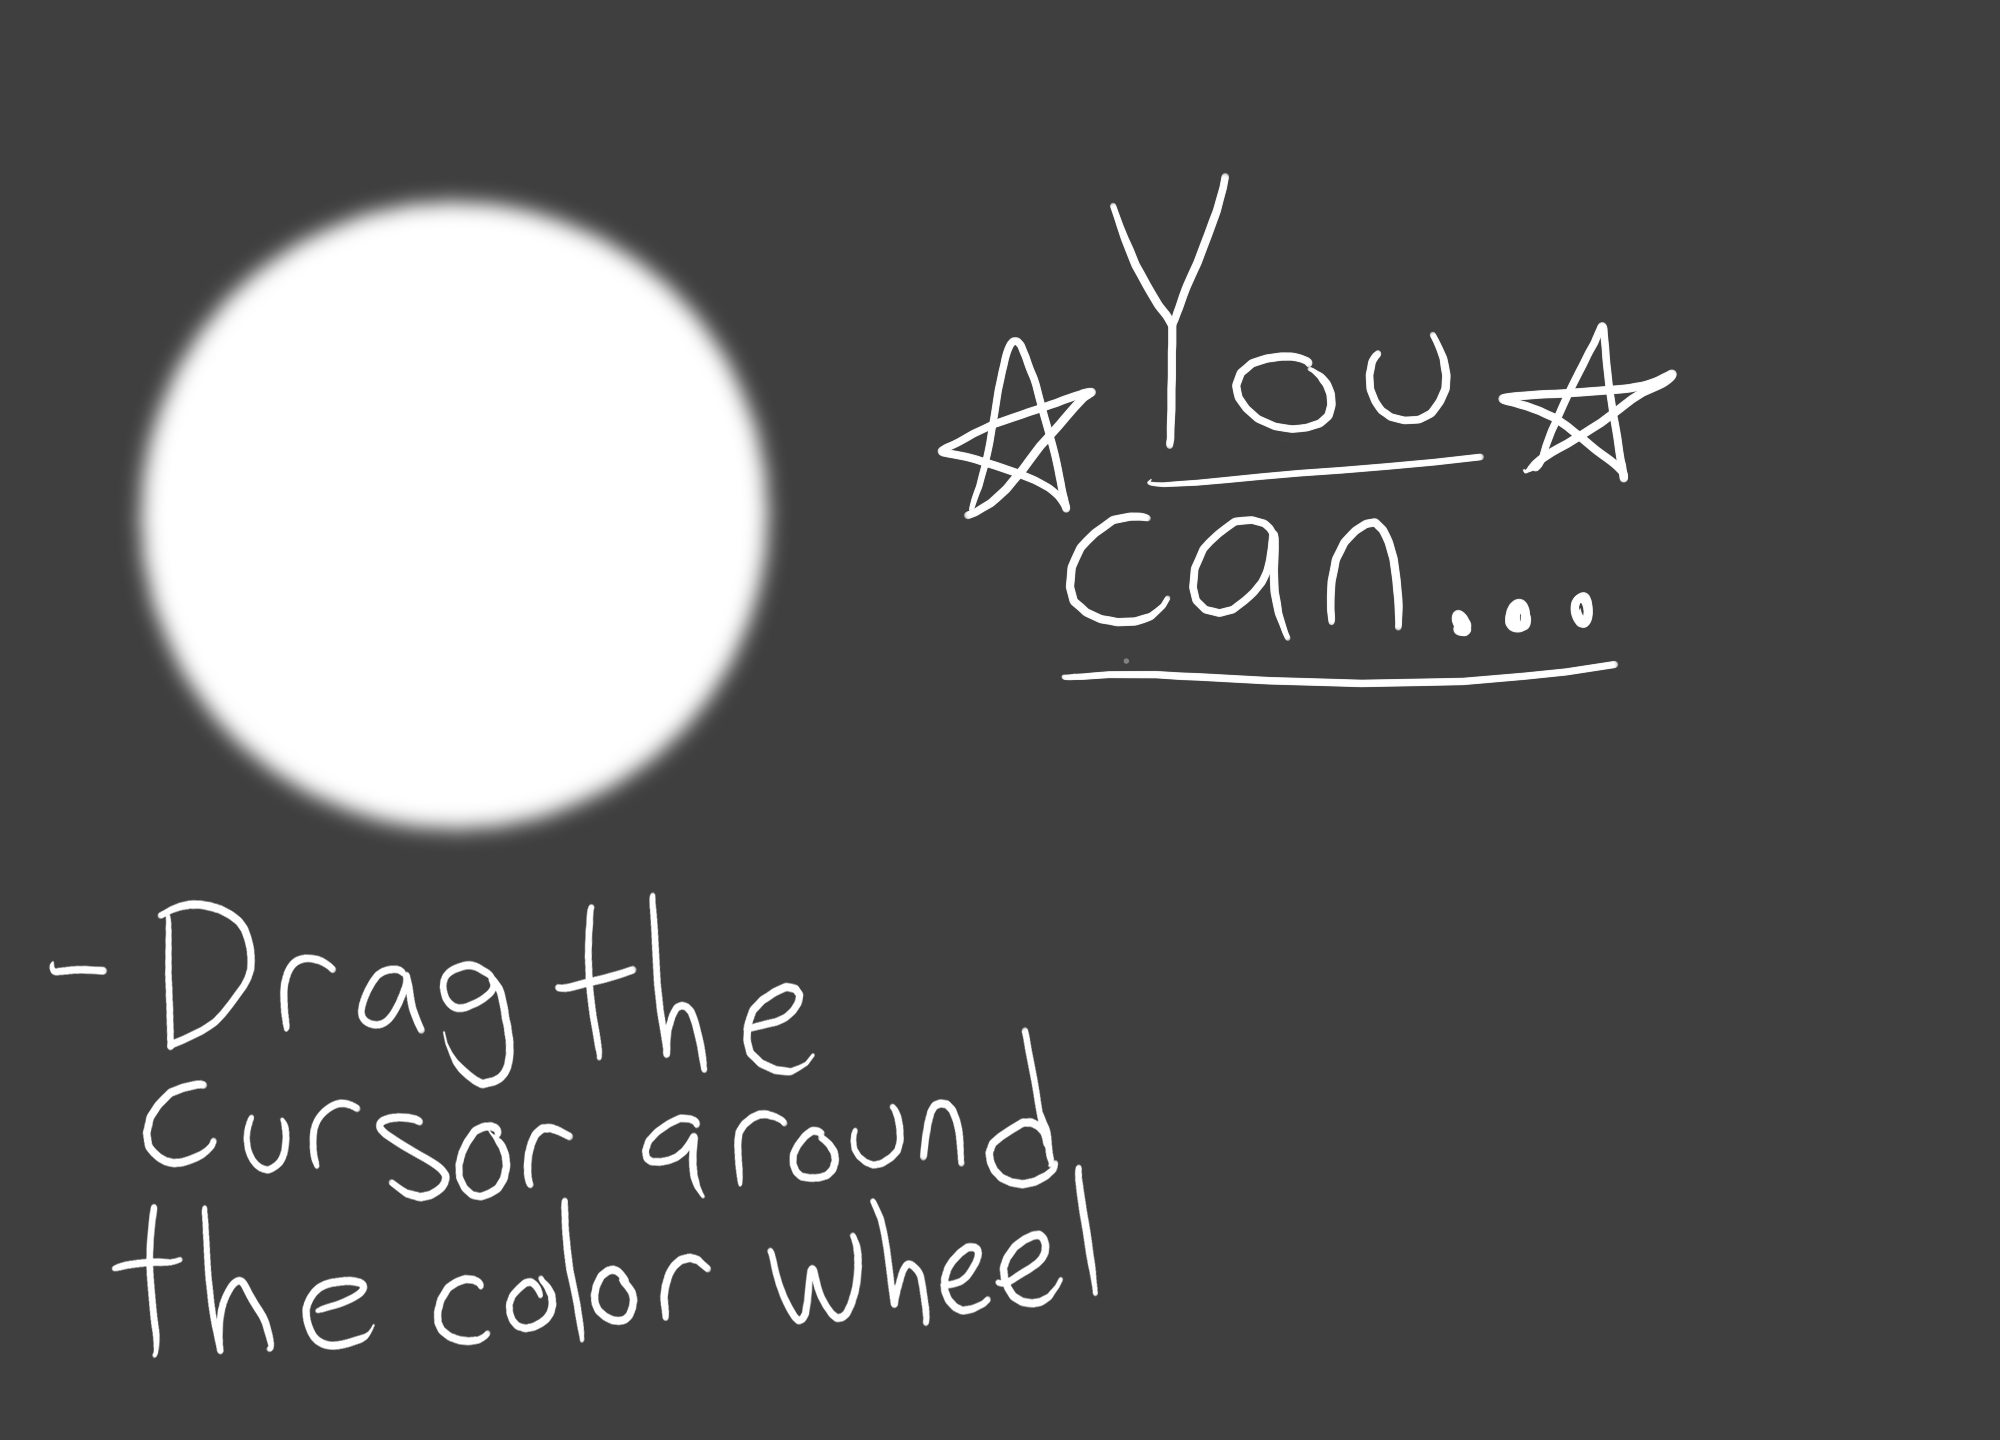 You
can...
- Drag the
cursor around
the color wheel